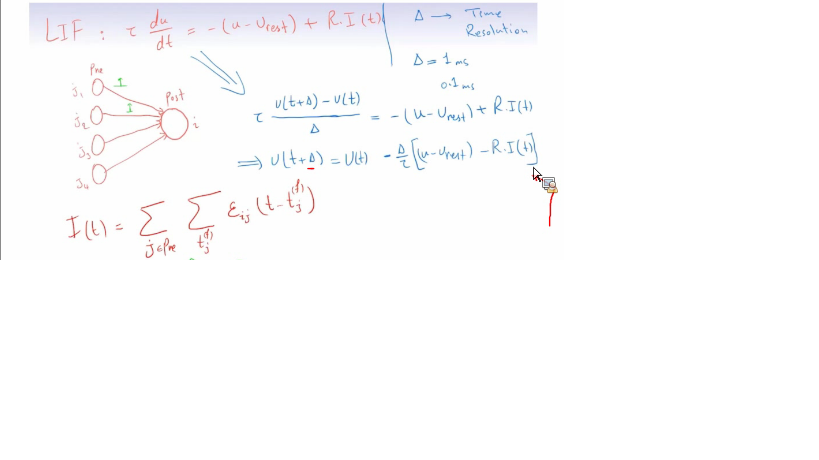 LIF : τ du/dt = -(u - u_rest) + R.I(t)
Δ → Time
Resolution
Δ = 1 ms
0.1 ms
Pre
j₁ I
Post
j₂ I i
j₃
j₄
τ (U(t+Δ) - U(t))/Δ = -(u - u_rest) + R.I(t)
⟹ U(t+Δ) = U(t) - Δ/τ [(u - u_rest) - R.I(t)]
I(t) = Σ_{j∈Pre} Σ_{t_j^{(f)}} ε_ij (t - t_j^{(f)})